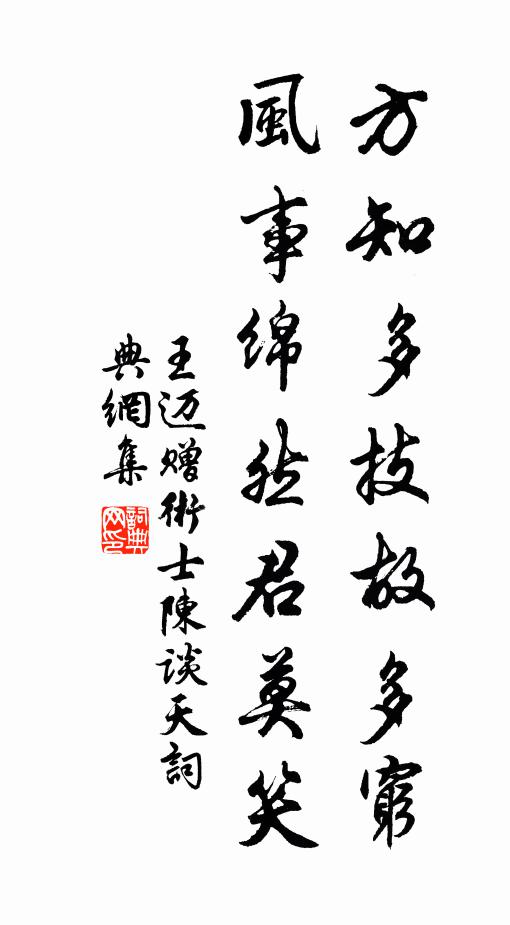 方知多技故多窮
風事綿然君莫笑
王迈赠術士陳谈天詞
典網集
詞典網印